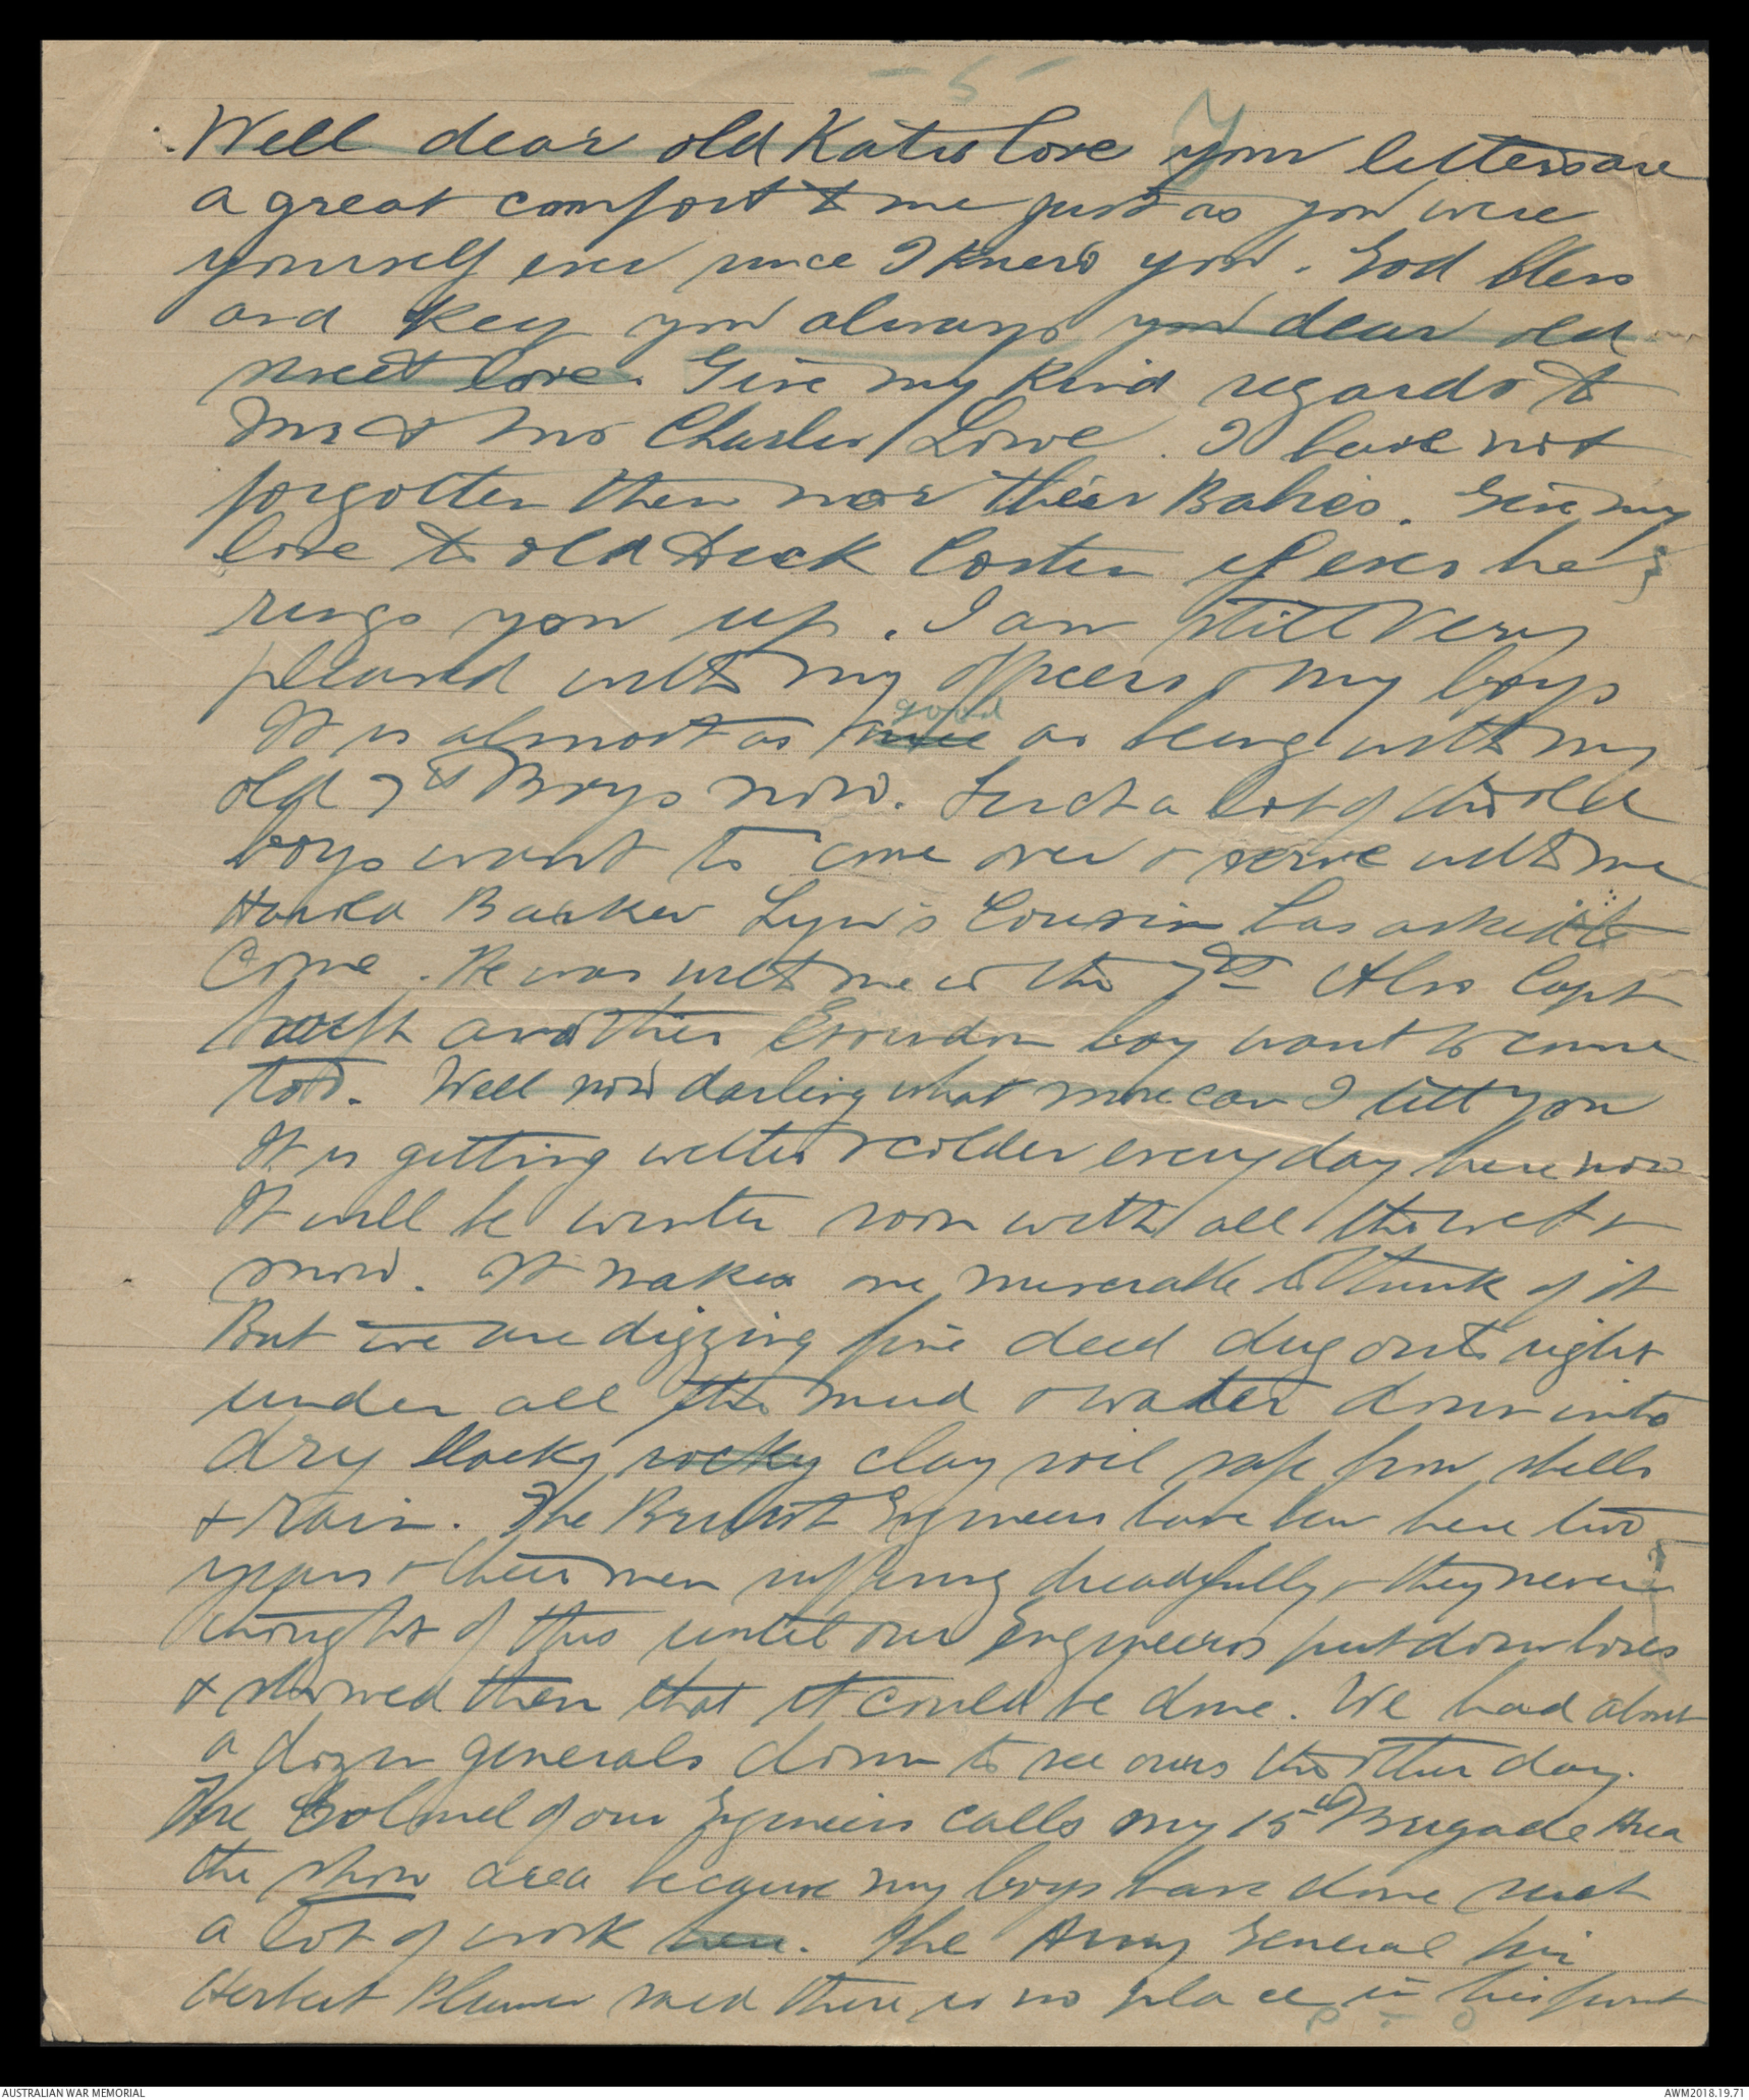 - 5 -
Well dear old Katie love Your letters are
a great comfort to me just as you were
yourself ever since I knew you. God bless
and keep you always you dear old
sweet love. Give my kind regards to
Mr & Mrs Charles Lowe. I have not
forgotten them nor their Babies. Give my
love to old Dick Coster if ever he
rings you up. I am still very
pleased with my officers & my boys
It is almost as nice good as being with my
old 7th Boys now. Such a lot of the old
boys want to come over & serve with me
Harold Barker Lyn's Cousin has asked to
come. He was with me in the 7th Also Capt
another Essendon boy want to come
too. Well now darling what more can I tell you
It is getting wetter & colder every day here now
It will be winter soon with all the wet &
snow. It makes one miserable to think of it
But we are digging fine deed dug outs right
under all the mud & water down into
dry blocky rocky clay soil safe from shells
& rain. The British Engineers have been here two
years & their men suffering dreadfully & they never
thought of this until our Engineers put down bores
& showed them that it could be done. We had about
a dozen generals down to see ours the other day.
The Colonel of our Engineers calls my 15th Brigade Area
the show area because my boys have done such
a lot of work here. The Army General Sir
Herbert Plumer said there is no place in his front
P. T. O
AUSTRALIAN WAR MEMORIAL
AWM2018.19.71